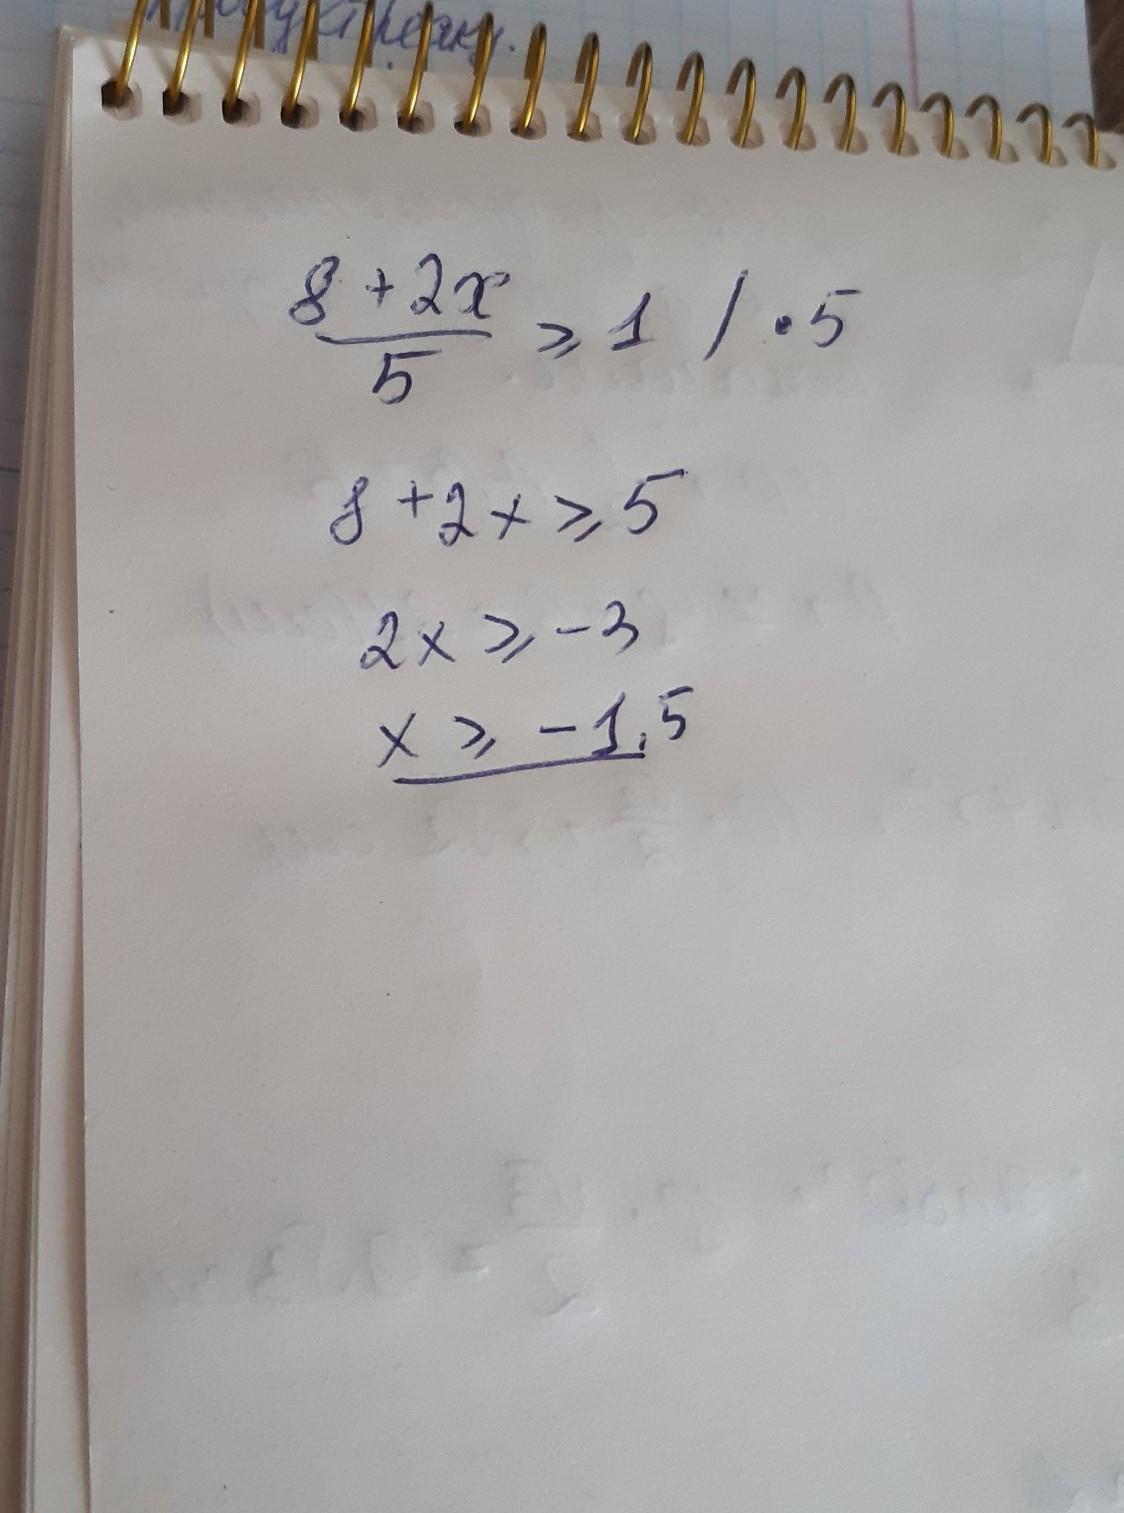 8 + 2x
─── ≥ 1 / • 5
5
8 + 2x ≥ 5
2x ≥ -3
x ≥ -1,5